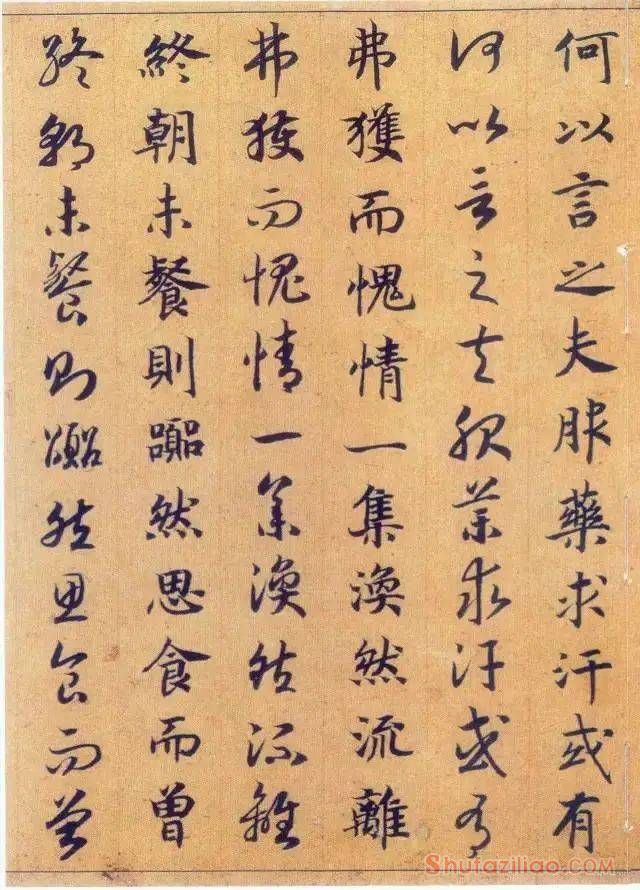 何以言之夫服藥求汗或有
何以言之夫服藥求汗或有
弗獲而愧情一集渙然流離
弗獲而愧情一集渙然流離
終朝未餐則囂然思食而曾
終朝未餐則囂然思食而曾
Shufaziliao.com